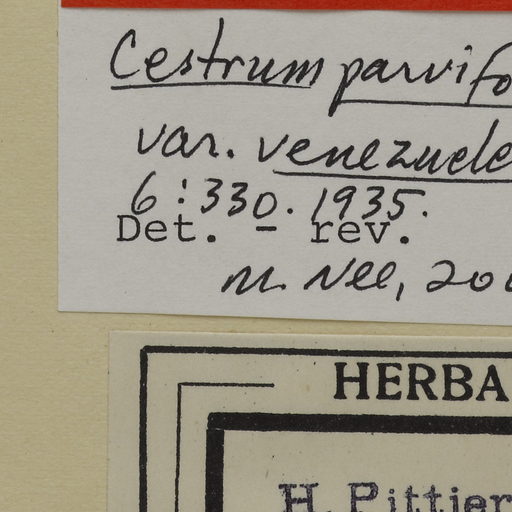 Cestrum parvifo
var. venezuele
6:330. 1935.
Det. - rev.
M. Nee, 200
HERBA
H. Pittier